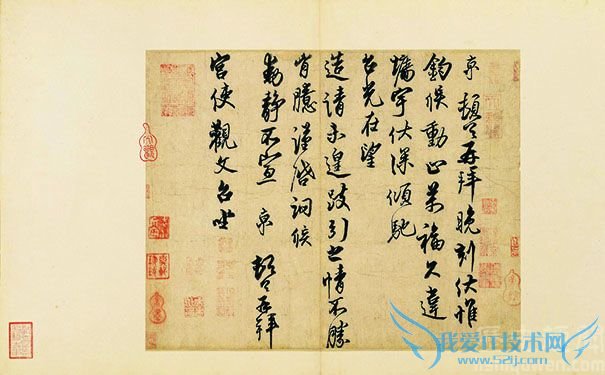 京頓首再拜晚刻伏惟
鈞候動止萬福久違
牆宇伏深傾馳
台光在望
造請未遑跂引之情不勝
胷臆謹啓詞候
動靜不宣京頓首再拜
宮使觀文台坐
我爱IT技术网
www.52ij.com